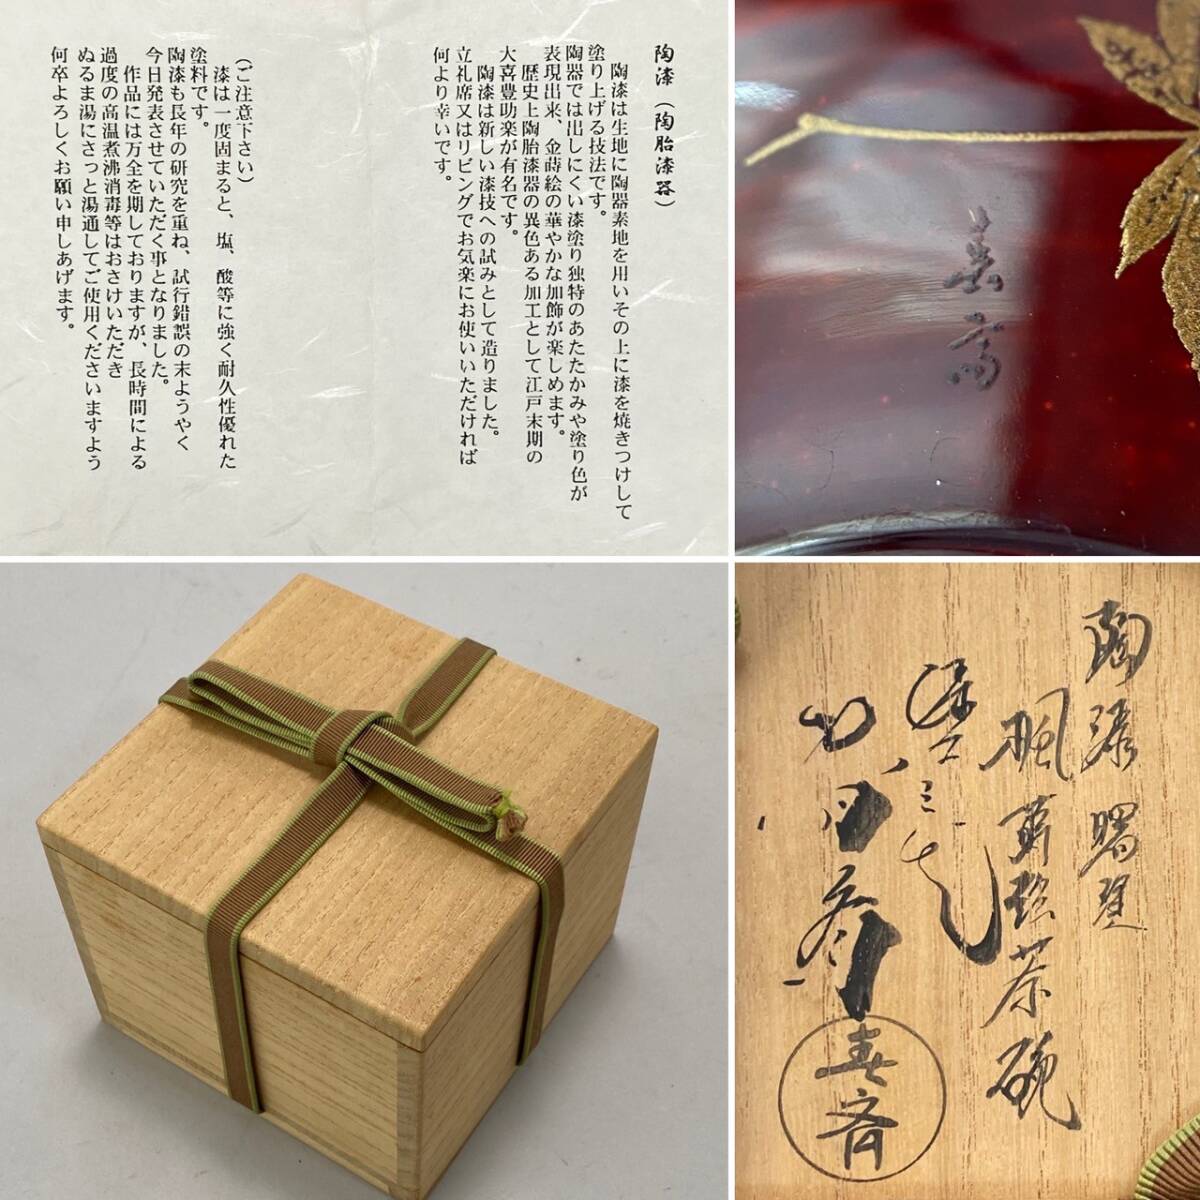 陶漆（陶胎漆器）
陶漆は生地に陶器素地を用いその上に漆を焼きつけして
塗り上げる技法です。
陶器では出しにくい漆塗り独特のあたたかみや塗り色が
表現出来、金蒔絵の華やかな加飾が楽しめます。
歴史上陶胎漆器の異色ある加工として江戸末期の
大喜豊助楽が有名です。
陶漆は新しい漆技への試みとして造りました。
立礼席又はリビングでお気楽にお使いいただければ
何より幸いです。
（ご注意下さい）
漆は一度固まると、塩、酸等に強く耐久性優れた
塗料です。
陶漆も長年の研究を重ね、試行錯誤の末ようやく
今日発表させていただく事となりました。
作品には万全を期しておりますが、長時間による
過度の高温煮沸消毒等はおさけいただき
ぬるま湯にさっと湯通してご使用くださいますよう
何卒よろしくお願い申しあげます。
春斎
陶漆 曙塗
楓 蒔絵茶碗
春斉